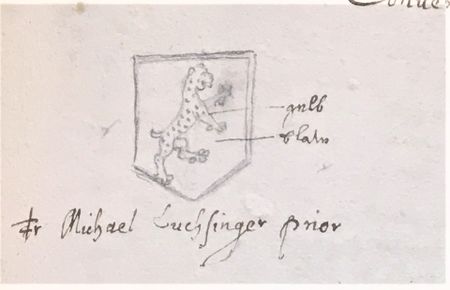 Conve
gelb
blaw
Fr Michael Luchsinger prior